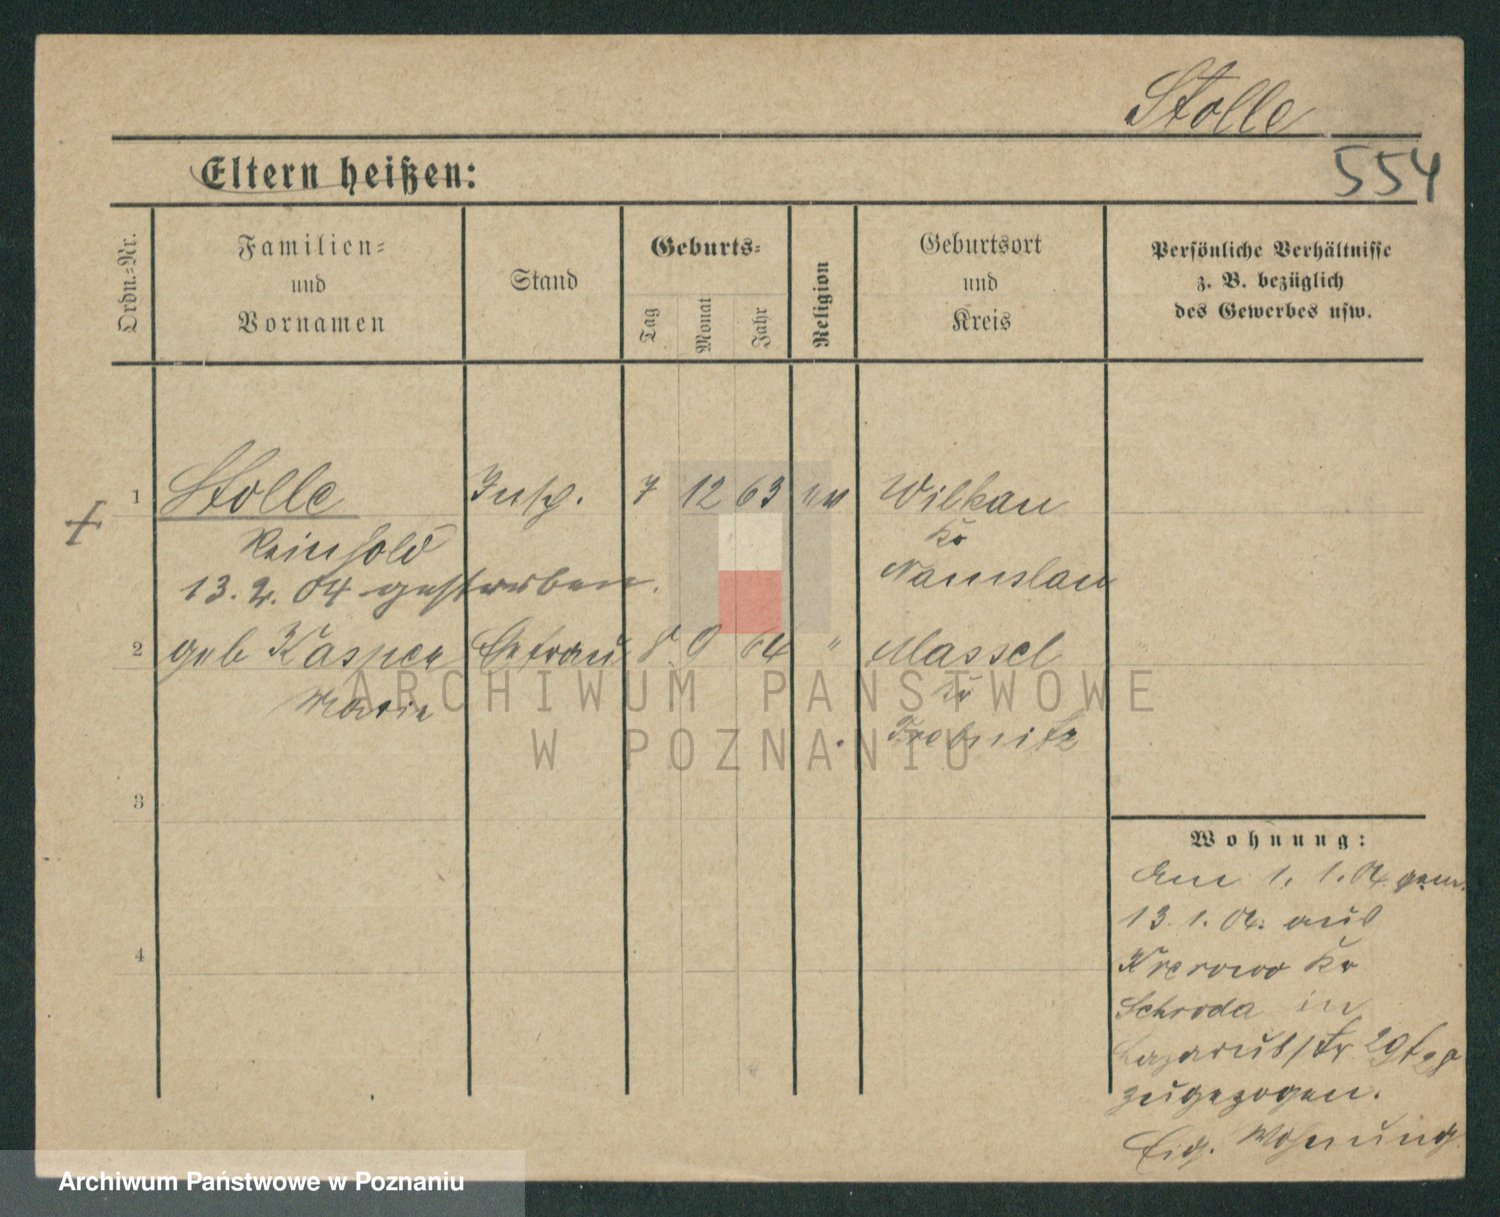 Stolle
554
Eltern heißen:
Ordn.=Nr.
Familien=
und
Vornamen
Stand
Geburts=
Tag
Monat
Jahr
Religion
Geburtsort
und
Kreis
Persönliche Verhältnisse
z. B. bezüglich
des Gewerbes usw.
1 Stolle Insp. 7 12 63 ev Wilkau
Reinhold Kr
13. 2. 04 gestorben. Namslau
2 geb Kasper Ehefrau 8 9 64 " Massel
Maria Kr
Trebnitz
3
4
Wohnung:
Am 1. 1. 04 gem.
13. 1. 04. aus
Krerowo Kr
Schroda in
Lazarusstr 29
zugezogen.
Eig. Wohnung
ARCHIWUM PAŃSTWOWE
W POZNANIU
Archiwum Państwowe w Poznaniu